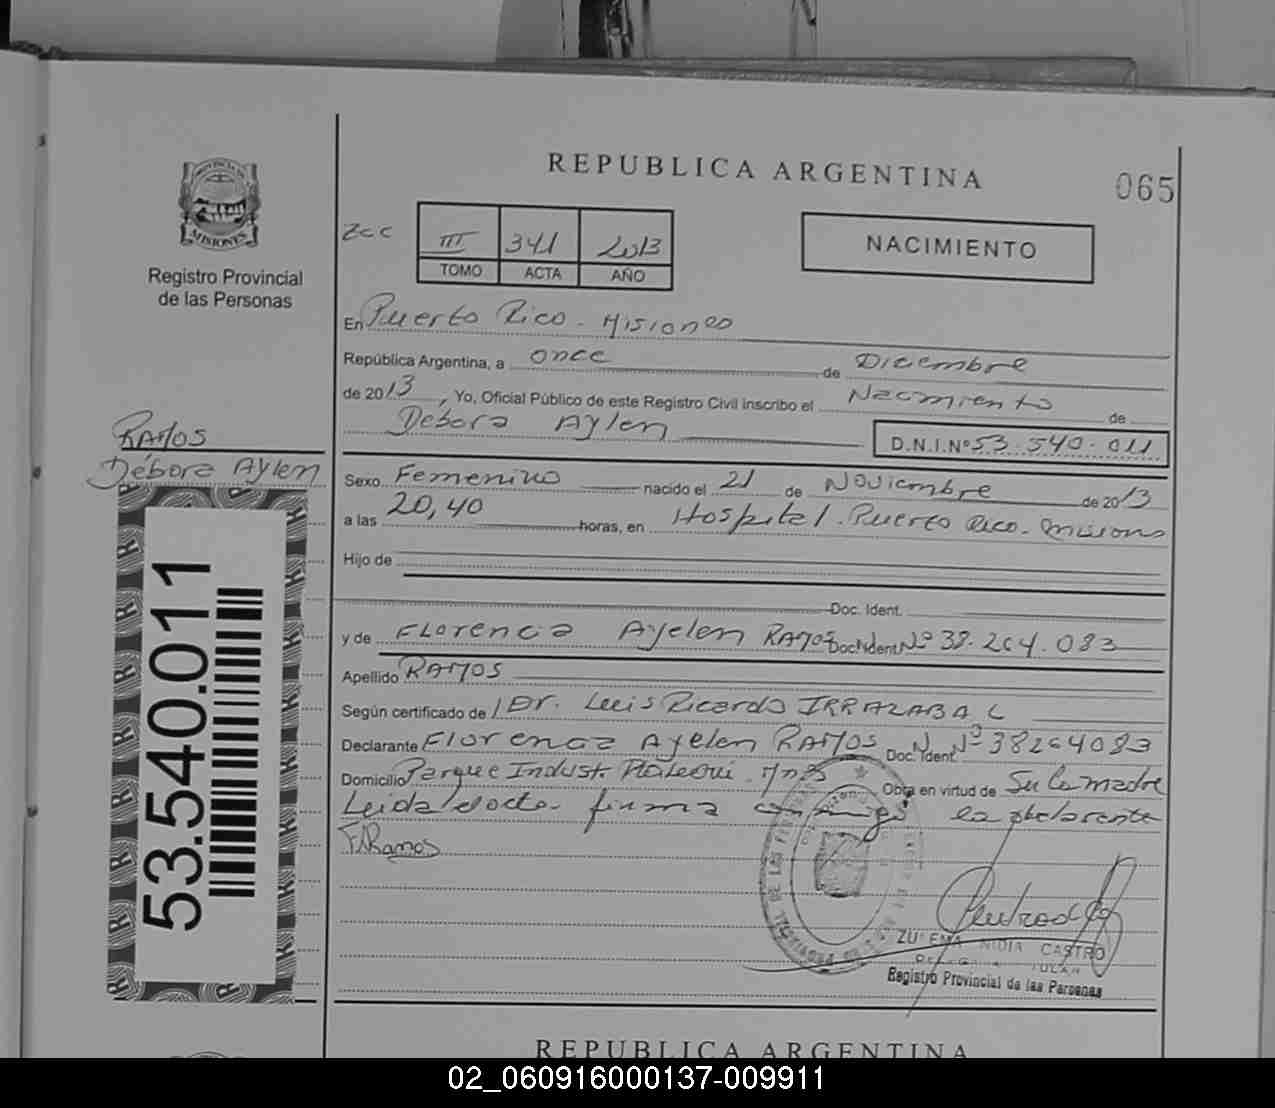 REPUBLICA ARGENTINA
065
PROVINCIA DE
MISIONES
Registro Provincial
de las Personas
zcc
III 341 2013
TOMO ACTA AÑO
NACIMIENTO
En Puerto Rico - Misiones
República Argentina, a once de Diciembre
de 2013, Yo, Oficial Público de este Registro Civil inscribo el Nacimiento de
Debora Aylen
D.N.I.Nº 53.540.011
RAMOS
Débora Aylen
Sexo Femenino nacido el 21 de Noviembre de 2013
a las 20,40 horas, en Hospital. Puerto Rico. misiones
Hijo de
Doc. Ident.
y de FLorencia Ayelen RAMOS Doc. Ident. Nº 38.264.083
Apellido RAMOS
Según certificado de Dr. Luis Ricardo IRRAZABAL
Declarante Florencia Ayelen RAMOS Doc. Ident. Nº 38264083
Domicilio Parque Indust. Mnes Obra en virtud de Su la madre
Leida el acta firma conmigo la declarante
F.A Ramos
53.540.011
ZULEMA NIDIA CASTRO
Registro Provincial de las Personas
REPUBLICA ARGENTINA
02_060916000137-009911